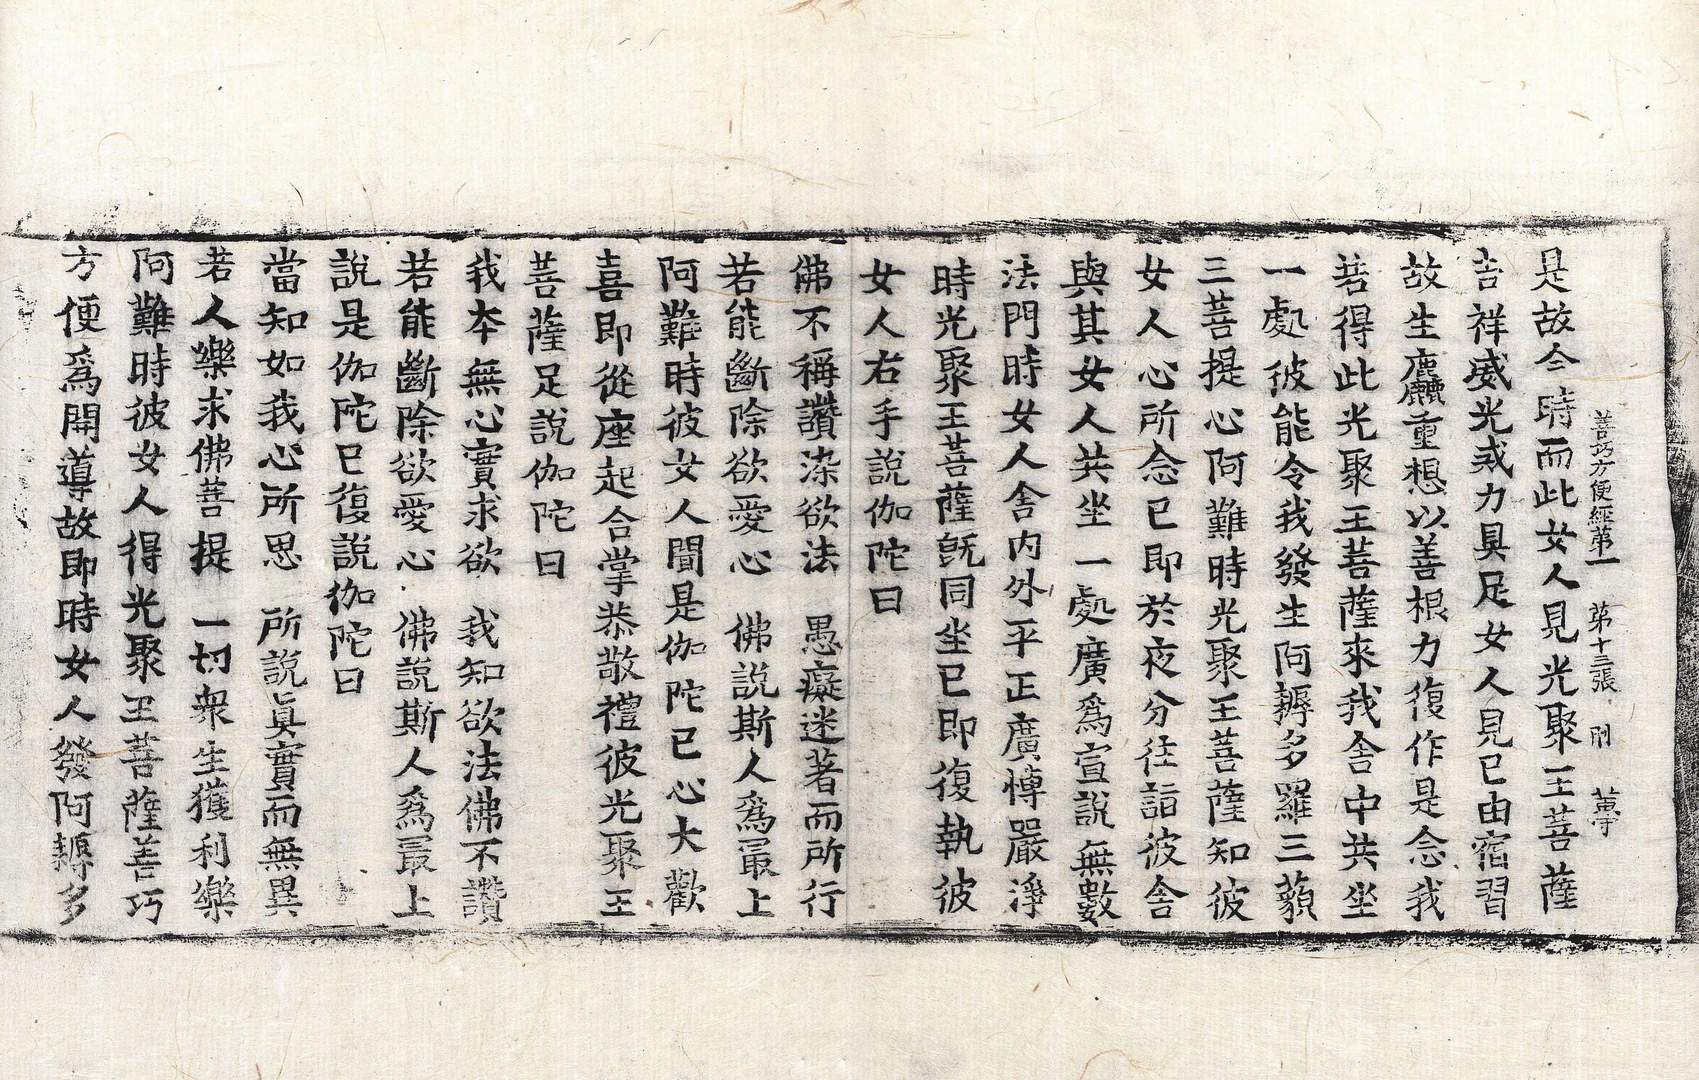 善巧方便經第一　第十三張　刖　萬守
是故今時而此女人見光聚王菩薩
吉祥威光戒力具足女人見已由宿習
故生麤重想以善根力復作是念我
若得此光聚王菩薩來我舍中共坐
一處彼能令我發生阿耨多羅三藐
三菩提心阿難時光聚王菩薩知彼
女人心所念已即於夜分往詣彼舍
與其女人共坐一處廣爲宣說無數
法門時女人舍內外平正廣愽嚴淨
時光聚王菩薩旣同坐已即復執彼
女人右手說伽陀曰
佛不稱讚染欲法　愚癡迷著而所行
若能斷除欲愛心　佛說斯人爲冣上
阿難時彼女人聞是伽陀已心大歡
喜即從座起合掌恭敬禮彼光聚王
菩薩足說伽陀曰
我本無心實求欲　我知欲法佛不讚
若能斷除欲愛心　佛說斯人爲冣上
說是伽陀已復說伽陀曰
當知如我心所思　所說眞實而無異
若人樂求佛菩提　一切衆生獲利樂
阿難時彼女人得光聚王菩薩善巧
方便爲開導故即時女人發阿耨多